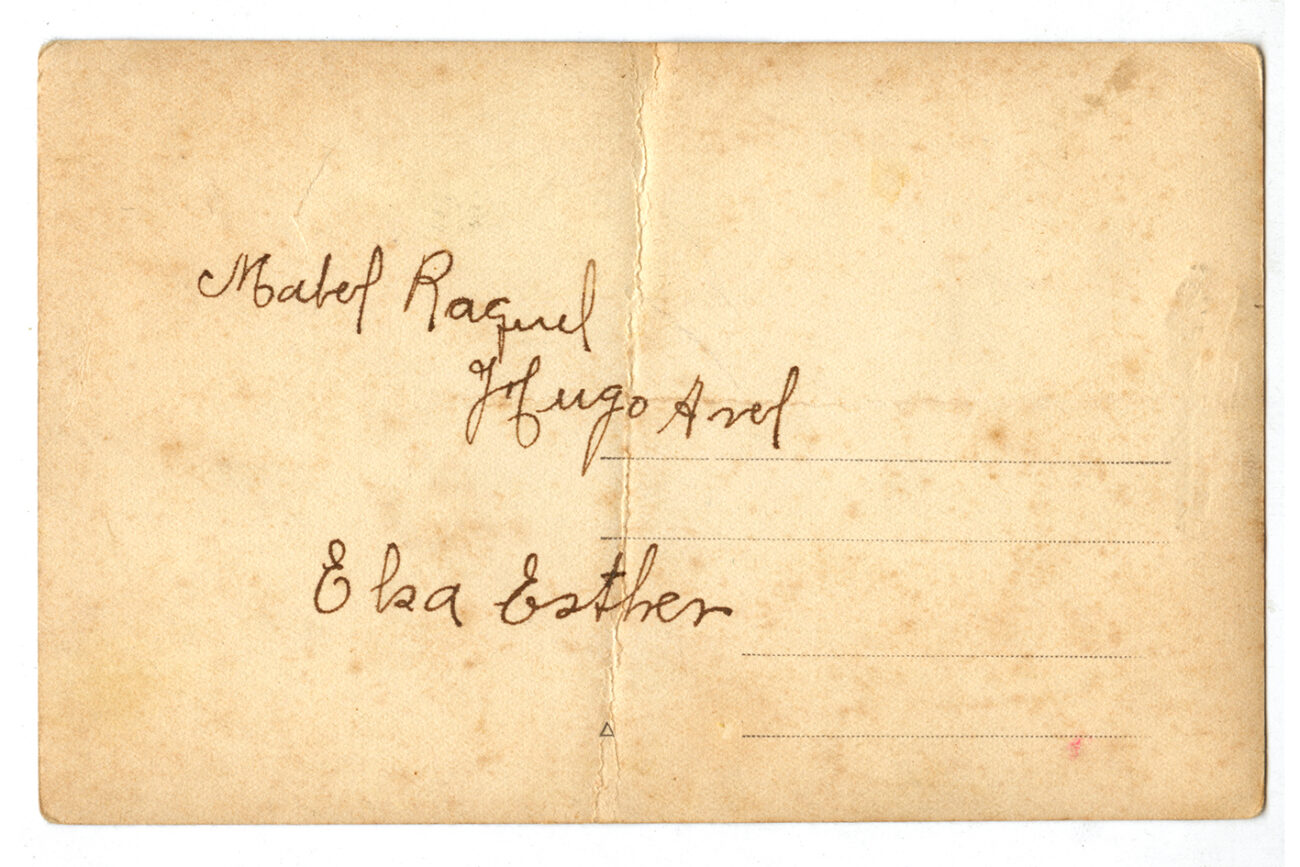 Mabel Raquel
Hugo Axel
Elsa Esther